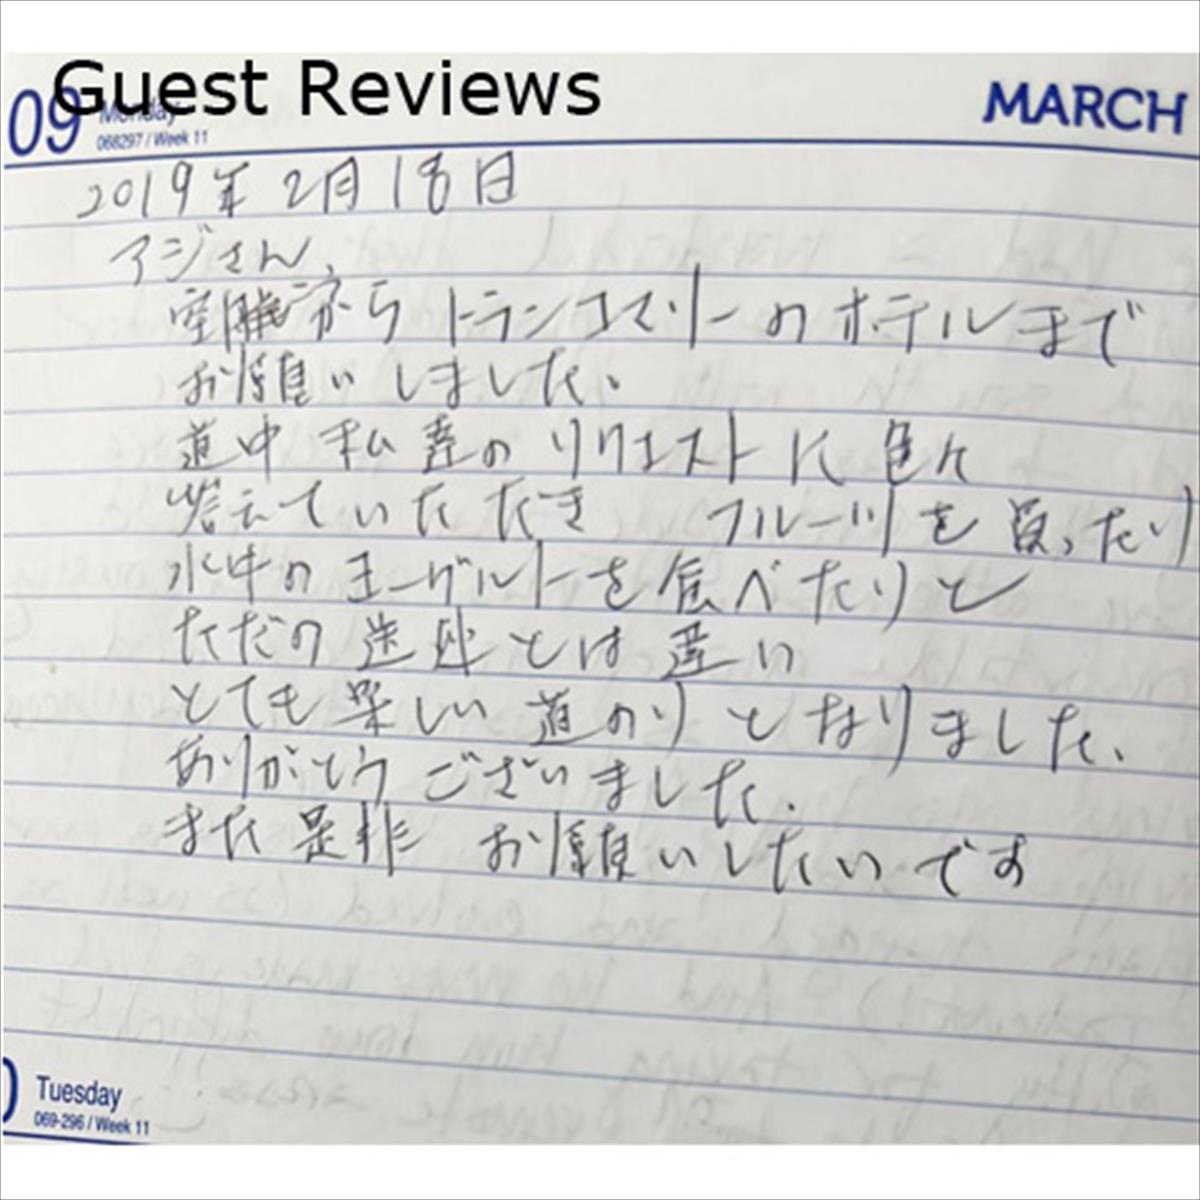 Guest Reviews
09 Monday
068297 / Week 11
MARCH
2019年2月18日
アジさん、
空港から トランコマリーのホテルまで
お願いしました。
道中 私達の リクエストに 色々
答えていただき フルーツを 買ったり
水牛の ヨーグルトを 食べたりと
ただの 送迎とは 違い
とても楽しい 道のりと なりました。
ありがとう ございました。
また 是非 お願いしたいです
Tuesday
069-296 / Week 11